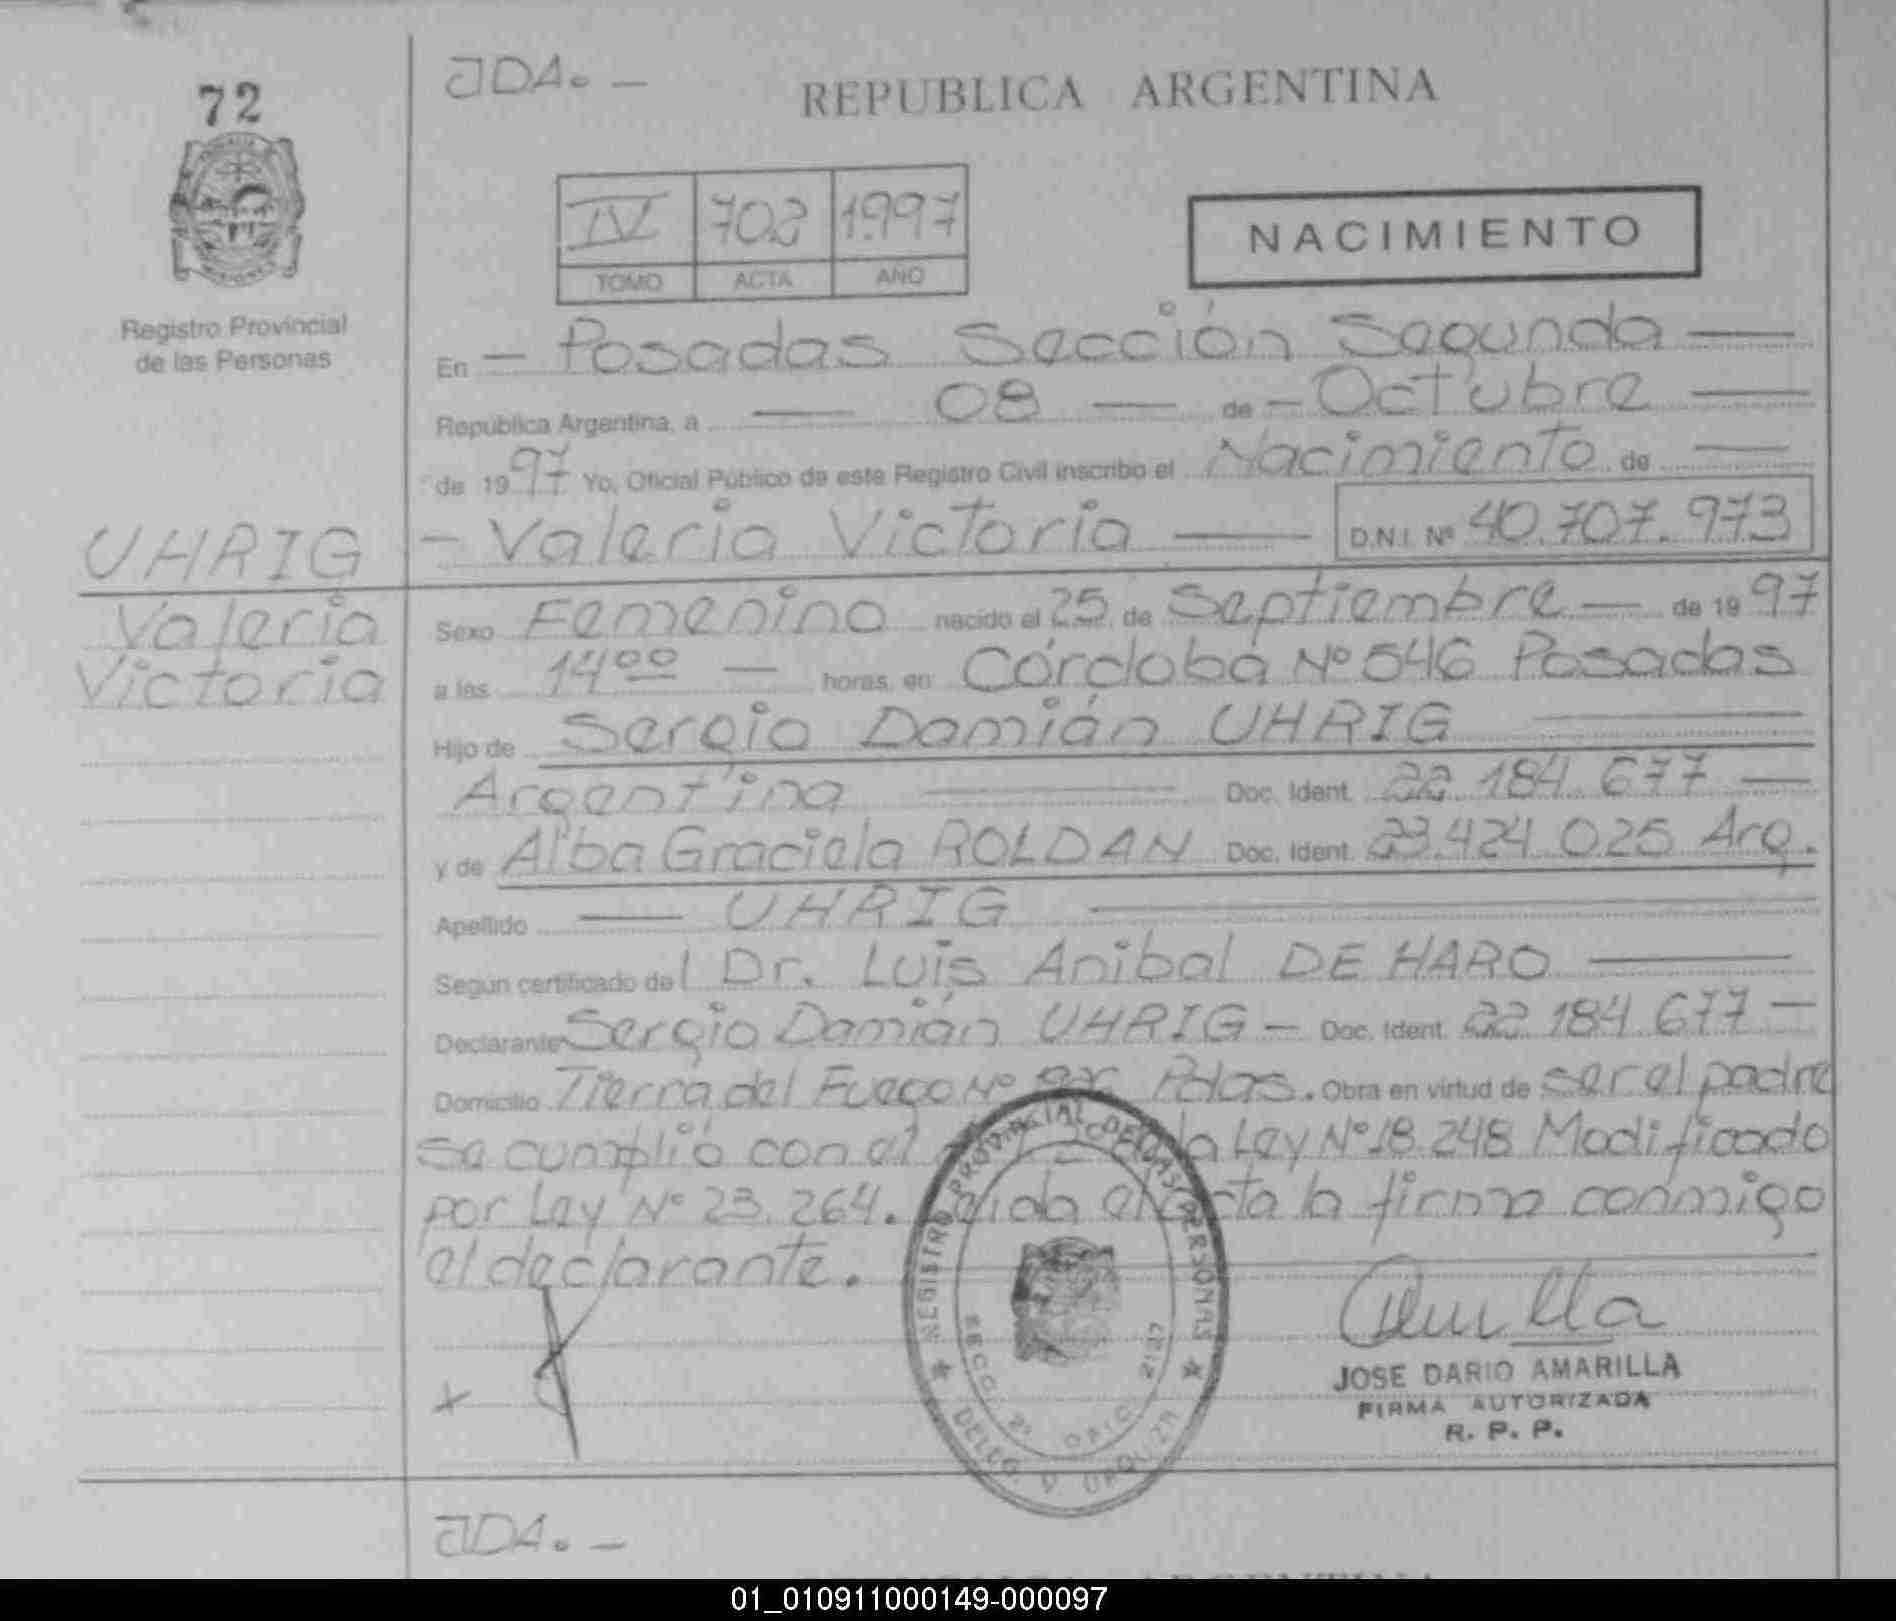 72
JDA. —
REPUBLICA ARGENTINA
IV 702 1.997
TOMO ACTA AÑO
NACIMIENTO
Registro Provincial
de las Personas
En — Posadas Sección Segunda —
República Argentina, a — 08 — de — Octubre —
de 19 97 Yo, Oficial Público de este Registro Civil inscribo el Nacimiento de —
UHRIG — Valeria Victoria — D.N.I. Nº 40.707.973
Valeria
Victoria
Sexo Femenino nacido el 25 de Septiembre — de 19 97
a las 14⁰⁰ — horas, en Córdoba Nº 546 Posadas
Hijo de Sergio Damián UHRIG
Argentina — Doc. Ident. 22.184.677 —
y de Alba Graciela ROLDAN Doc. Ident. 23.424.025 Arg.
Apellido — UHRIG —
Según certificado del Dr. Luis Anibal DE HARO —
Declarante Sergio Damián UHRIG — Doc. Ident. 22.184.677 —
Domicilio Tierra del Fuego Nº Pdas. Obra en virtud de ser el padre
se cumplió con el la Ley Nº 18.248 Modificado
por Ley Nº 23.264. Leida el acta la firma conmigo
el declarante.
REGISTRO PROVINCIAL DE LAS PERSONAS
SECC. 2ª OFIC. 2127
DELEG. V. URQUIZA
x
JOSE DARIO AMARILLA
FIRMA AUTORIZADA
R. P. P.
JDA. —
01_010911000149-000097